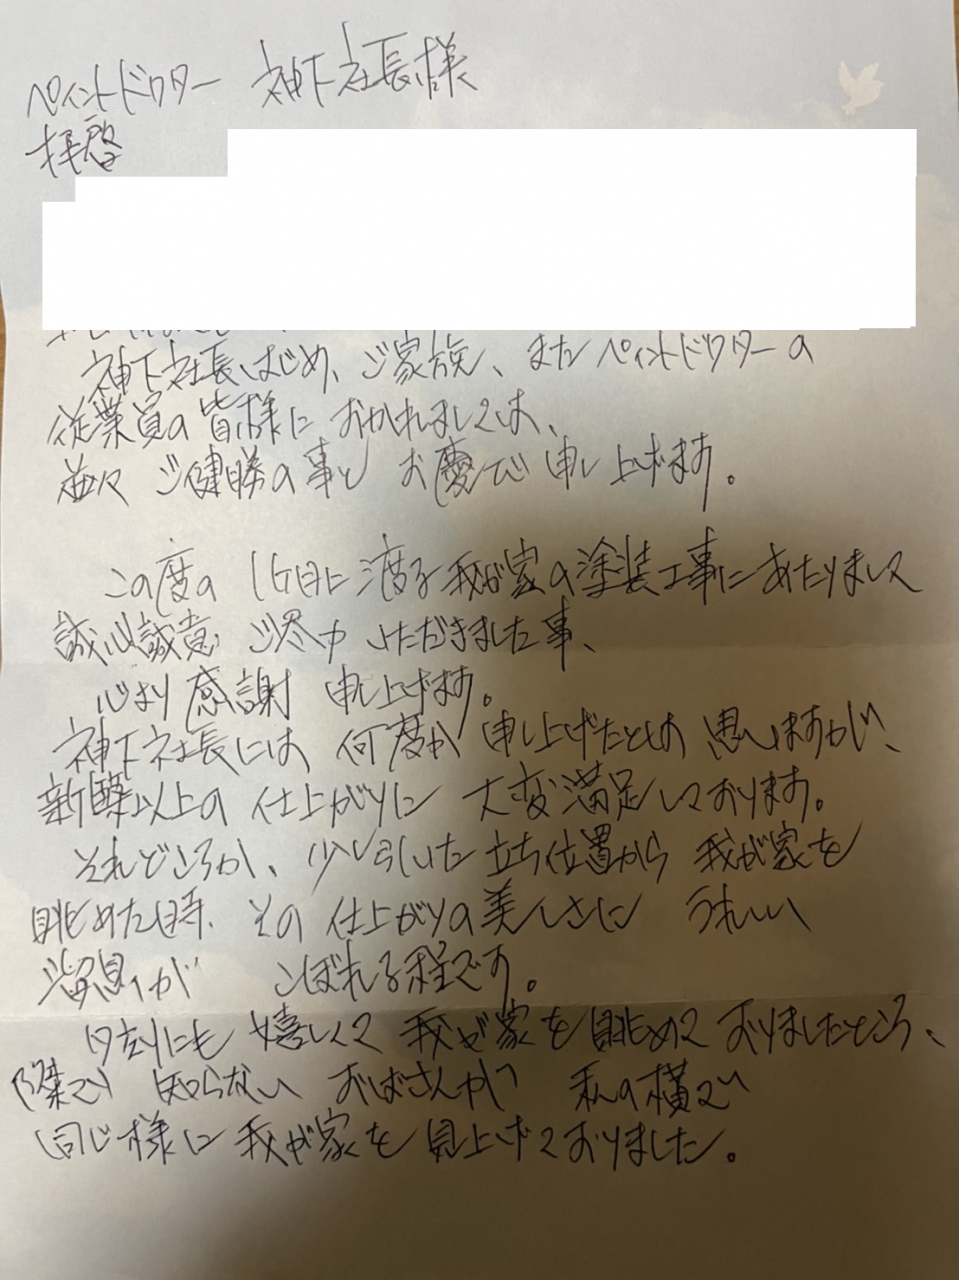 ペイントドクター 神下社長様
拝啓
神下社長はじめ、ご家族、またペイントドクターの
従業員の皆様におかれましては、
益々ご健勝の事とお慶び申し上げます。
この度の に渡る我が家の塗装工事にあたりまして
誠心誠意ご尽力いただきました事、
心より感謝申し上げます。
神下社長には、何度か申し上げたとは思いますが、
新築以上の仕上がりに大変満足しております。
それどころか、少し引いた立ち位置から我が家を
眺めた時、その仕上がりの美しさにうれしい
溜息がこぼれる程です。
夕刻にも嬉しくて我が家を眺めておりましたところ、
知らないおばさんが私の横で
同じ様に我が家を見上げておりました。